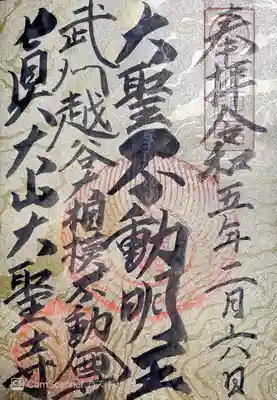 奉拝 令和五年二月六日
大聖不動明王
武州越谷大相模不動尊
真大山大聖寺
CamScanner